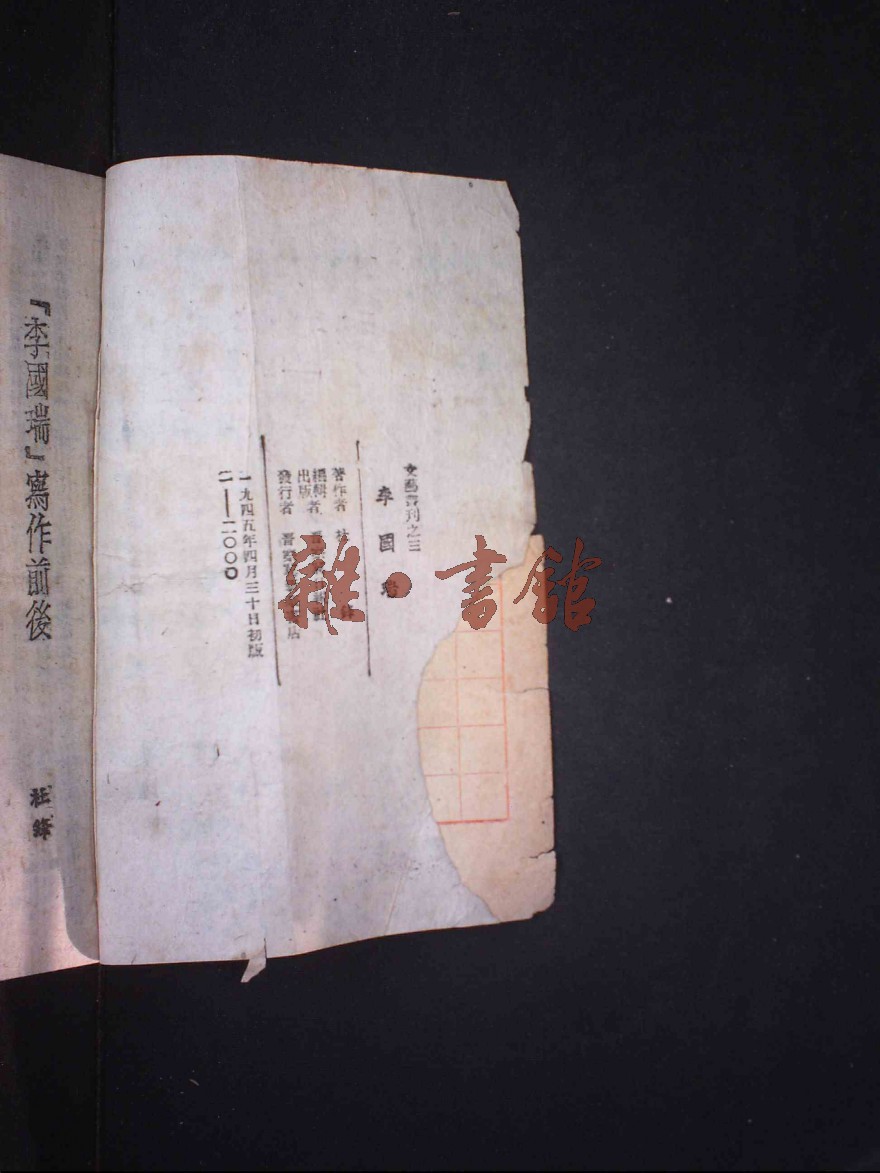 文藝書刊之三
李國
著作者
編輯者
出版
發行者 晋察 店
一九四五年四月三十日初版
一——二〇〇〇
『李國瑞』寫作前後
杜烽
雜·書館